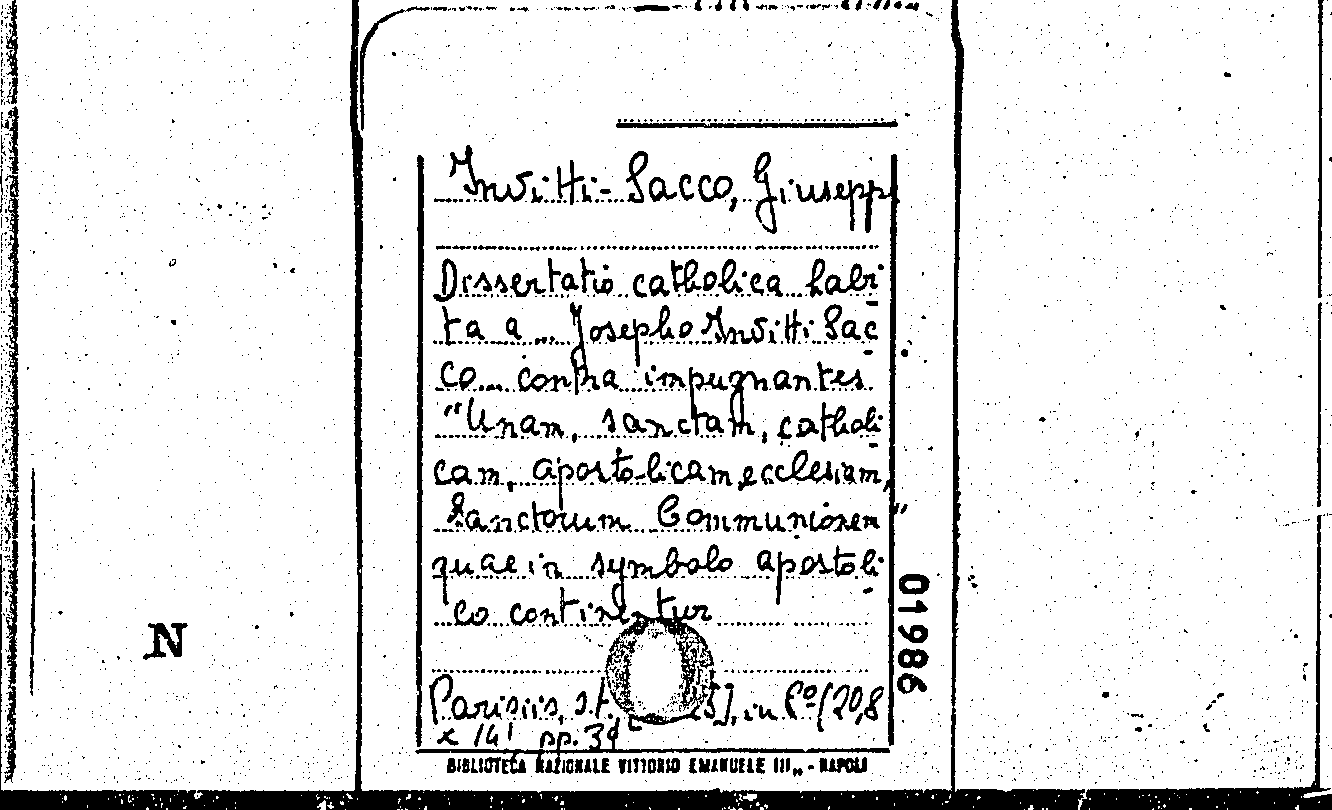 Invitti-Sacco, Giuseppe
Dissertatio catholica habi-
ta a ... Josepho Invitti Sac-
co... contra impugnantes
"Unam, sanctam, catholi-
cam, apostolicam, ecclesiam,
Sanctorum Communionem"
quae in symbolo apostoli-
co continentur
Parisiis, s.t. 5], in fº (20,8
x 14) pp. 39
BIBLIOTECA NAZIONALE VITTORIO EMANUELE III„ - NAPOLI
01986
N